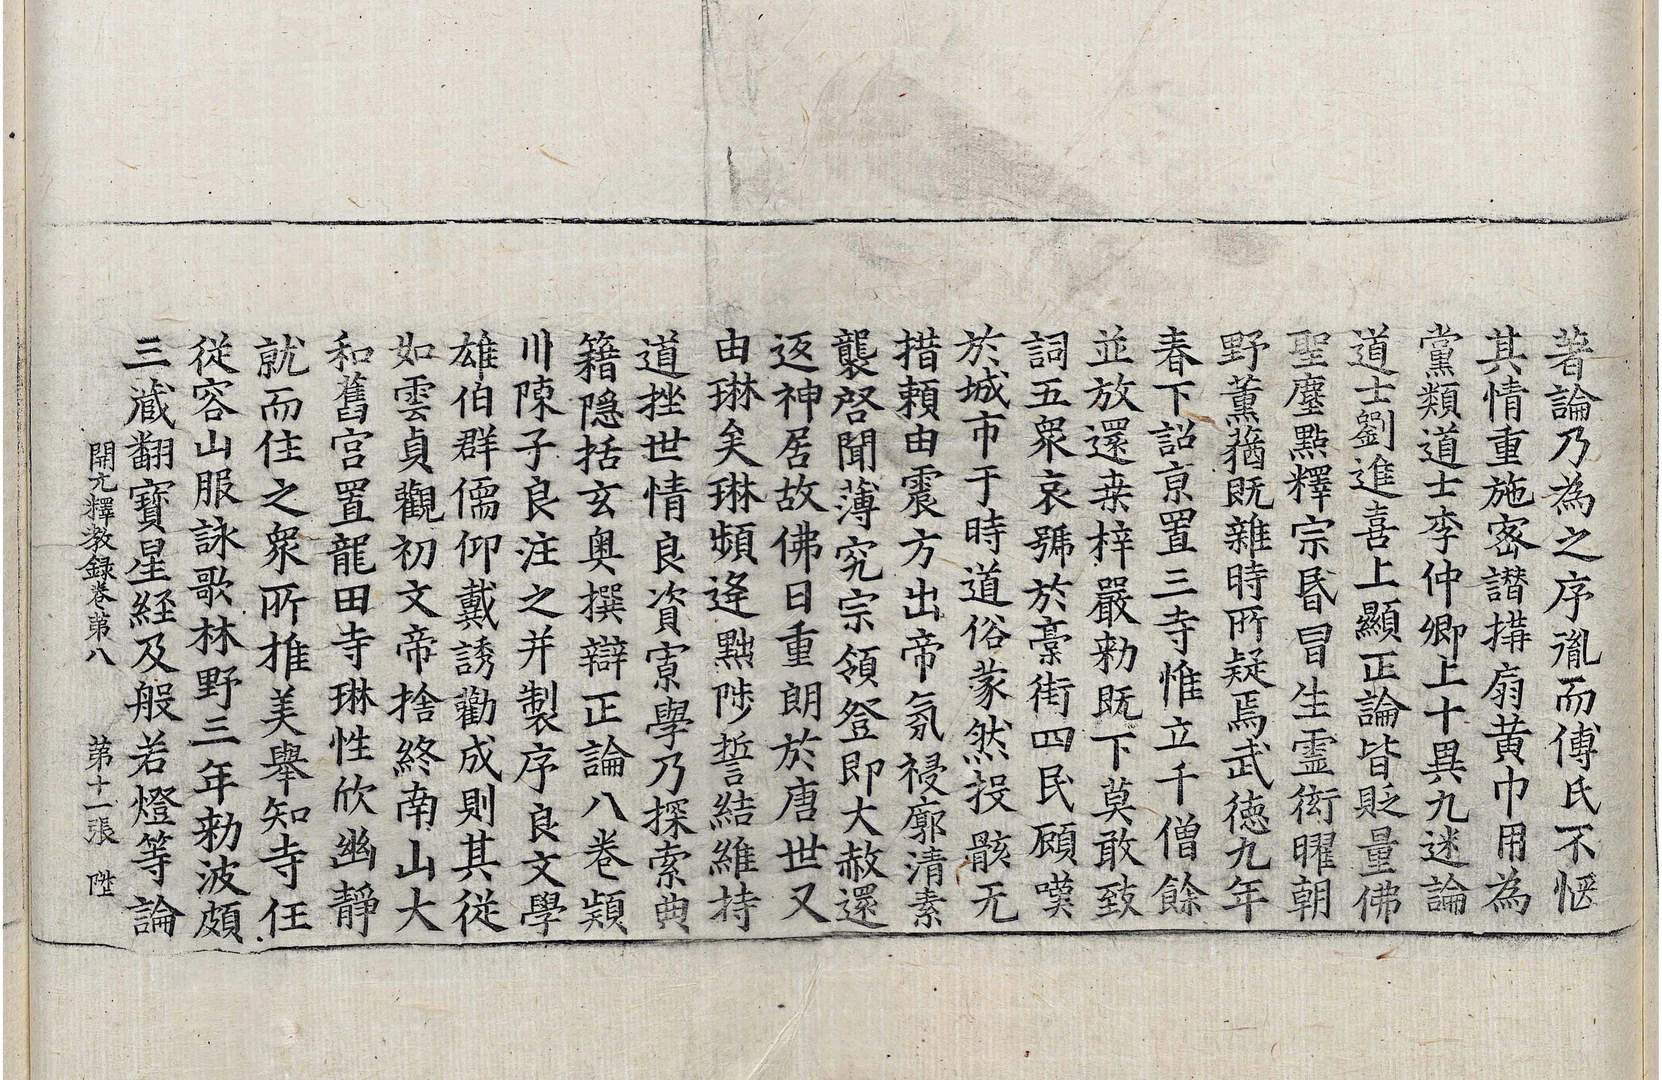 著論乃為之序胤而傅氏不愜
其情重施密譖搆扇黃巾用為
黨類道士李仲卿上十異九迷論
道士劉進喜上顯正論皆貶量佛
聖塵黷釋宗昏冒生靈衒曜朝
野薰蕕既雜時所疑焉武德九年
春下詔京置三寺惟立千僧餘
並放還桒梓嚴勑既下莫敢致
詞五衆哀號於藁街四民顧嘆
於城市于時道俗蒙然投骸无
措賴由震方出帝氛祲廓清素
襲啓聞薄究宗領登即大赦還
返神居故佛日重朗於唐世又
由琳矣琳頻逢黜陟誓結維持
道挫世情良資寡學乃探索典
籍隱括玄奧撰辯正論八卷潁
川陳子良注之并製序良文學
雄伯群儒仰戴誘勸成則其從
如雲貞觀初文帝捨終南山大
和舊宮置龍田寺琳性欣幽靜
就而住之衆所推美舉知寺任
從容山服詠歌林野三年勑波頗
三藏翻寶星經及般若燈等論
開元釋教録卷第八　第十一張　陞